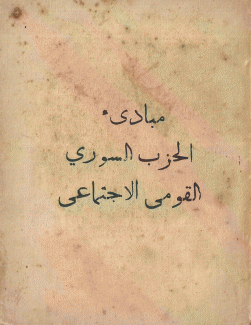 مبادىء
الحزب السوري
القومي الاجتماعي